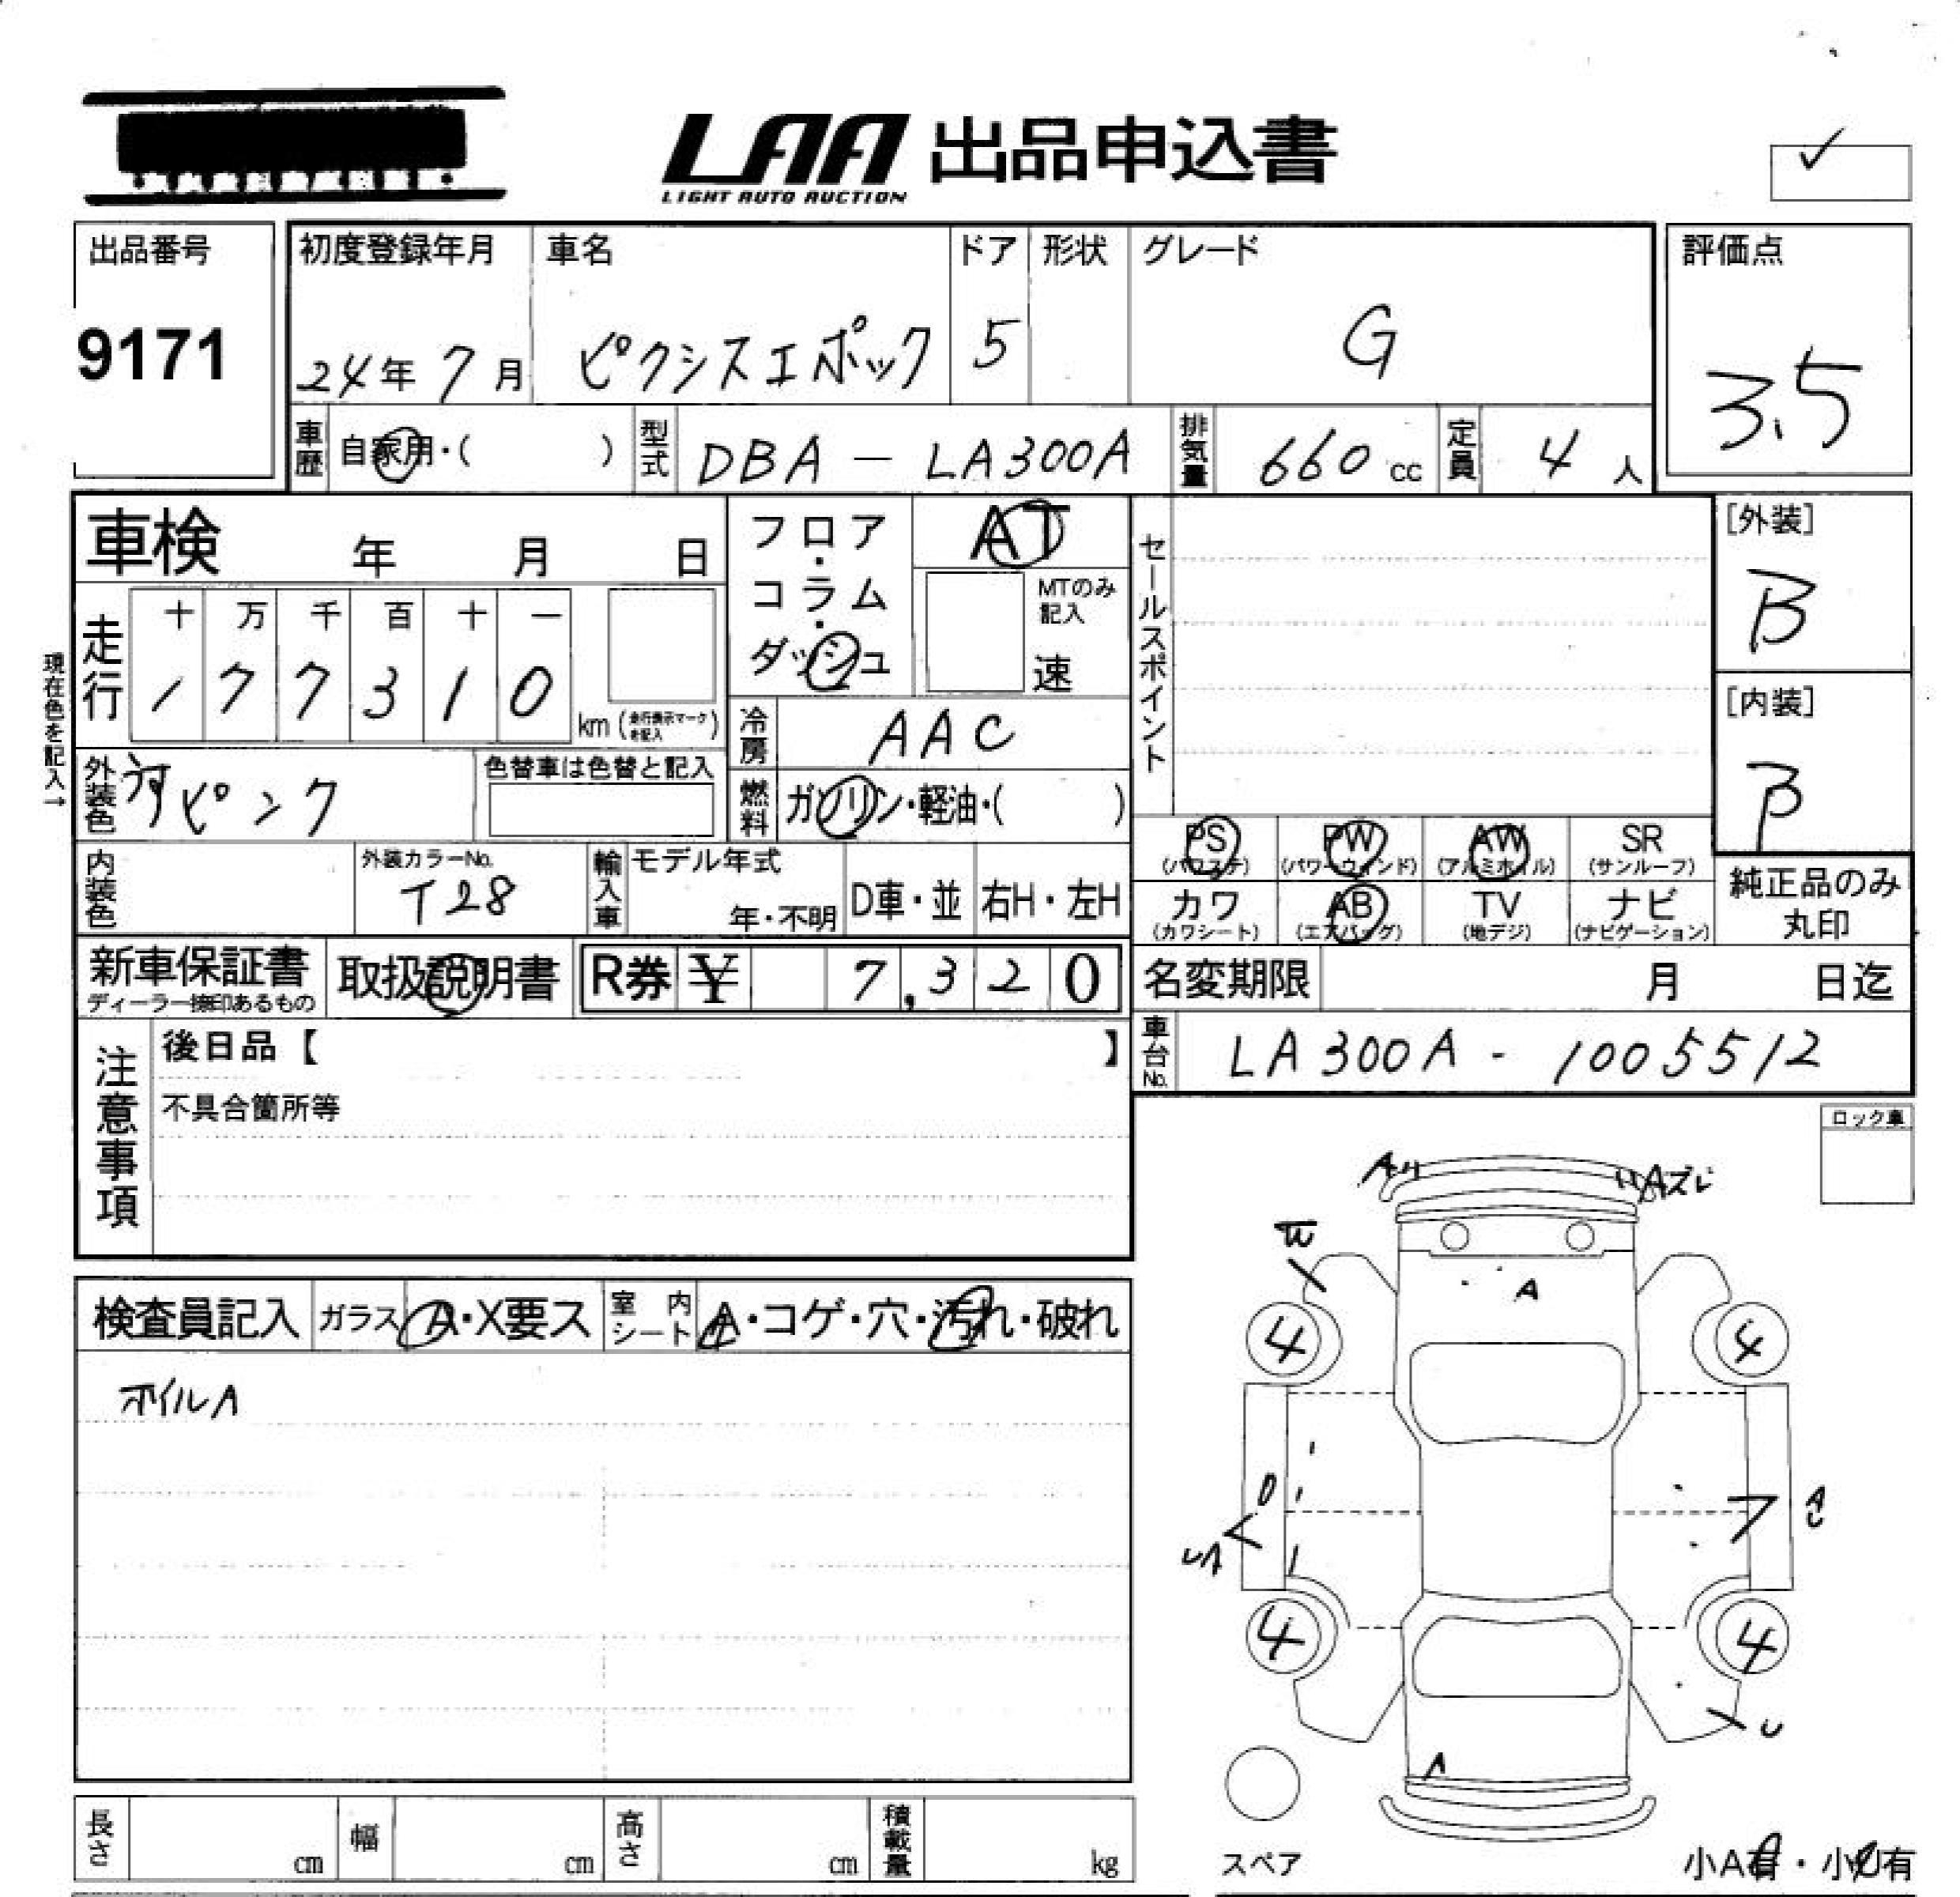 LAA 出品申込書
LIGHT AUTO AUCTION
出品番号
9171
初度登録年月
24年 7月
車名
ピクシスエポック
ドア
5
形状
グレード
G
評価点
3.5
車歴
自家用・( )
型式
DBA - LA300A
排気量
660 cc
定員
4 人
車検 年 月 日
フロア・コラム・ダッシュ
AT
MTのみ記入
速
セールスポイント
[外装]
B
[内装]
B
現在色を記入→
走行
十 万 千 百 十 一
1 7 7 3 1 0
km (走行表示マークを記入)
冷房
AAC
外装色
うすピンク
色替車は色替と記入
燃料
ガソリン・軽油・( )
PS
(パワステ)
PW
(パワーウィンド)
AW
(アルミホイル)
SR
(サンルーフ)
カワ
(カワシート)
AB
(エアバッグ)
TV
(地デジ)
ナビ
(ナビゲーション)
純正品のみ
丸印
内装色
外装カラーNo.
T28
輸入車
モデル年式
年・不明
D車・並
右H・左H
新車保証書
ディーラー捺印あるもの
取扱説明書
R券 ¥ 7,320
名変期限 月 日迄
車台No.
LA300A - 1005512
注意事項
後日品【 】
不具合箇所等
ロック車
A
Aズレ
A
4
4
D
4
4
U
A
検査員記入
ガラス
A・X要ス
室内シート
A・コゲ・穴・汚れ・破れ
ホイルA
長さ cm
幅 cm
高さ cm
積載量 kg
スペア
小A有・小U有